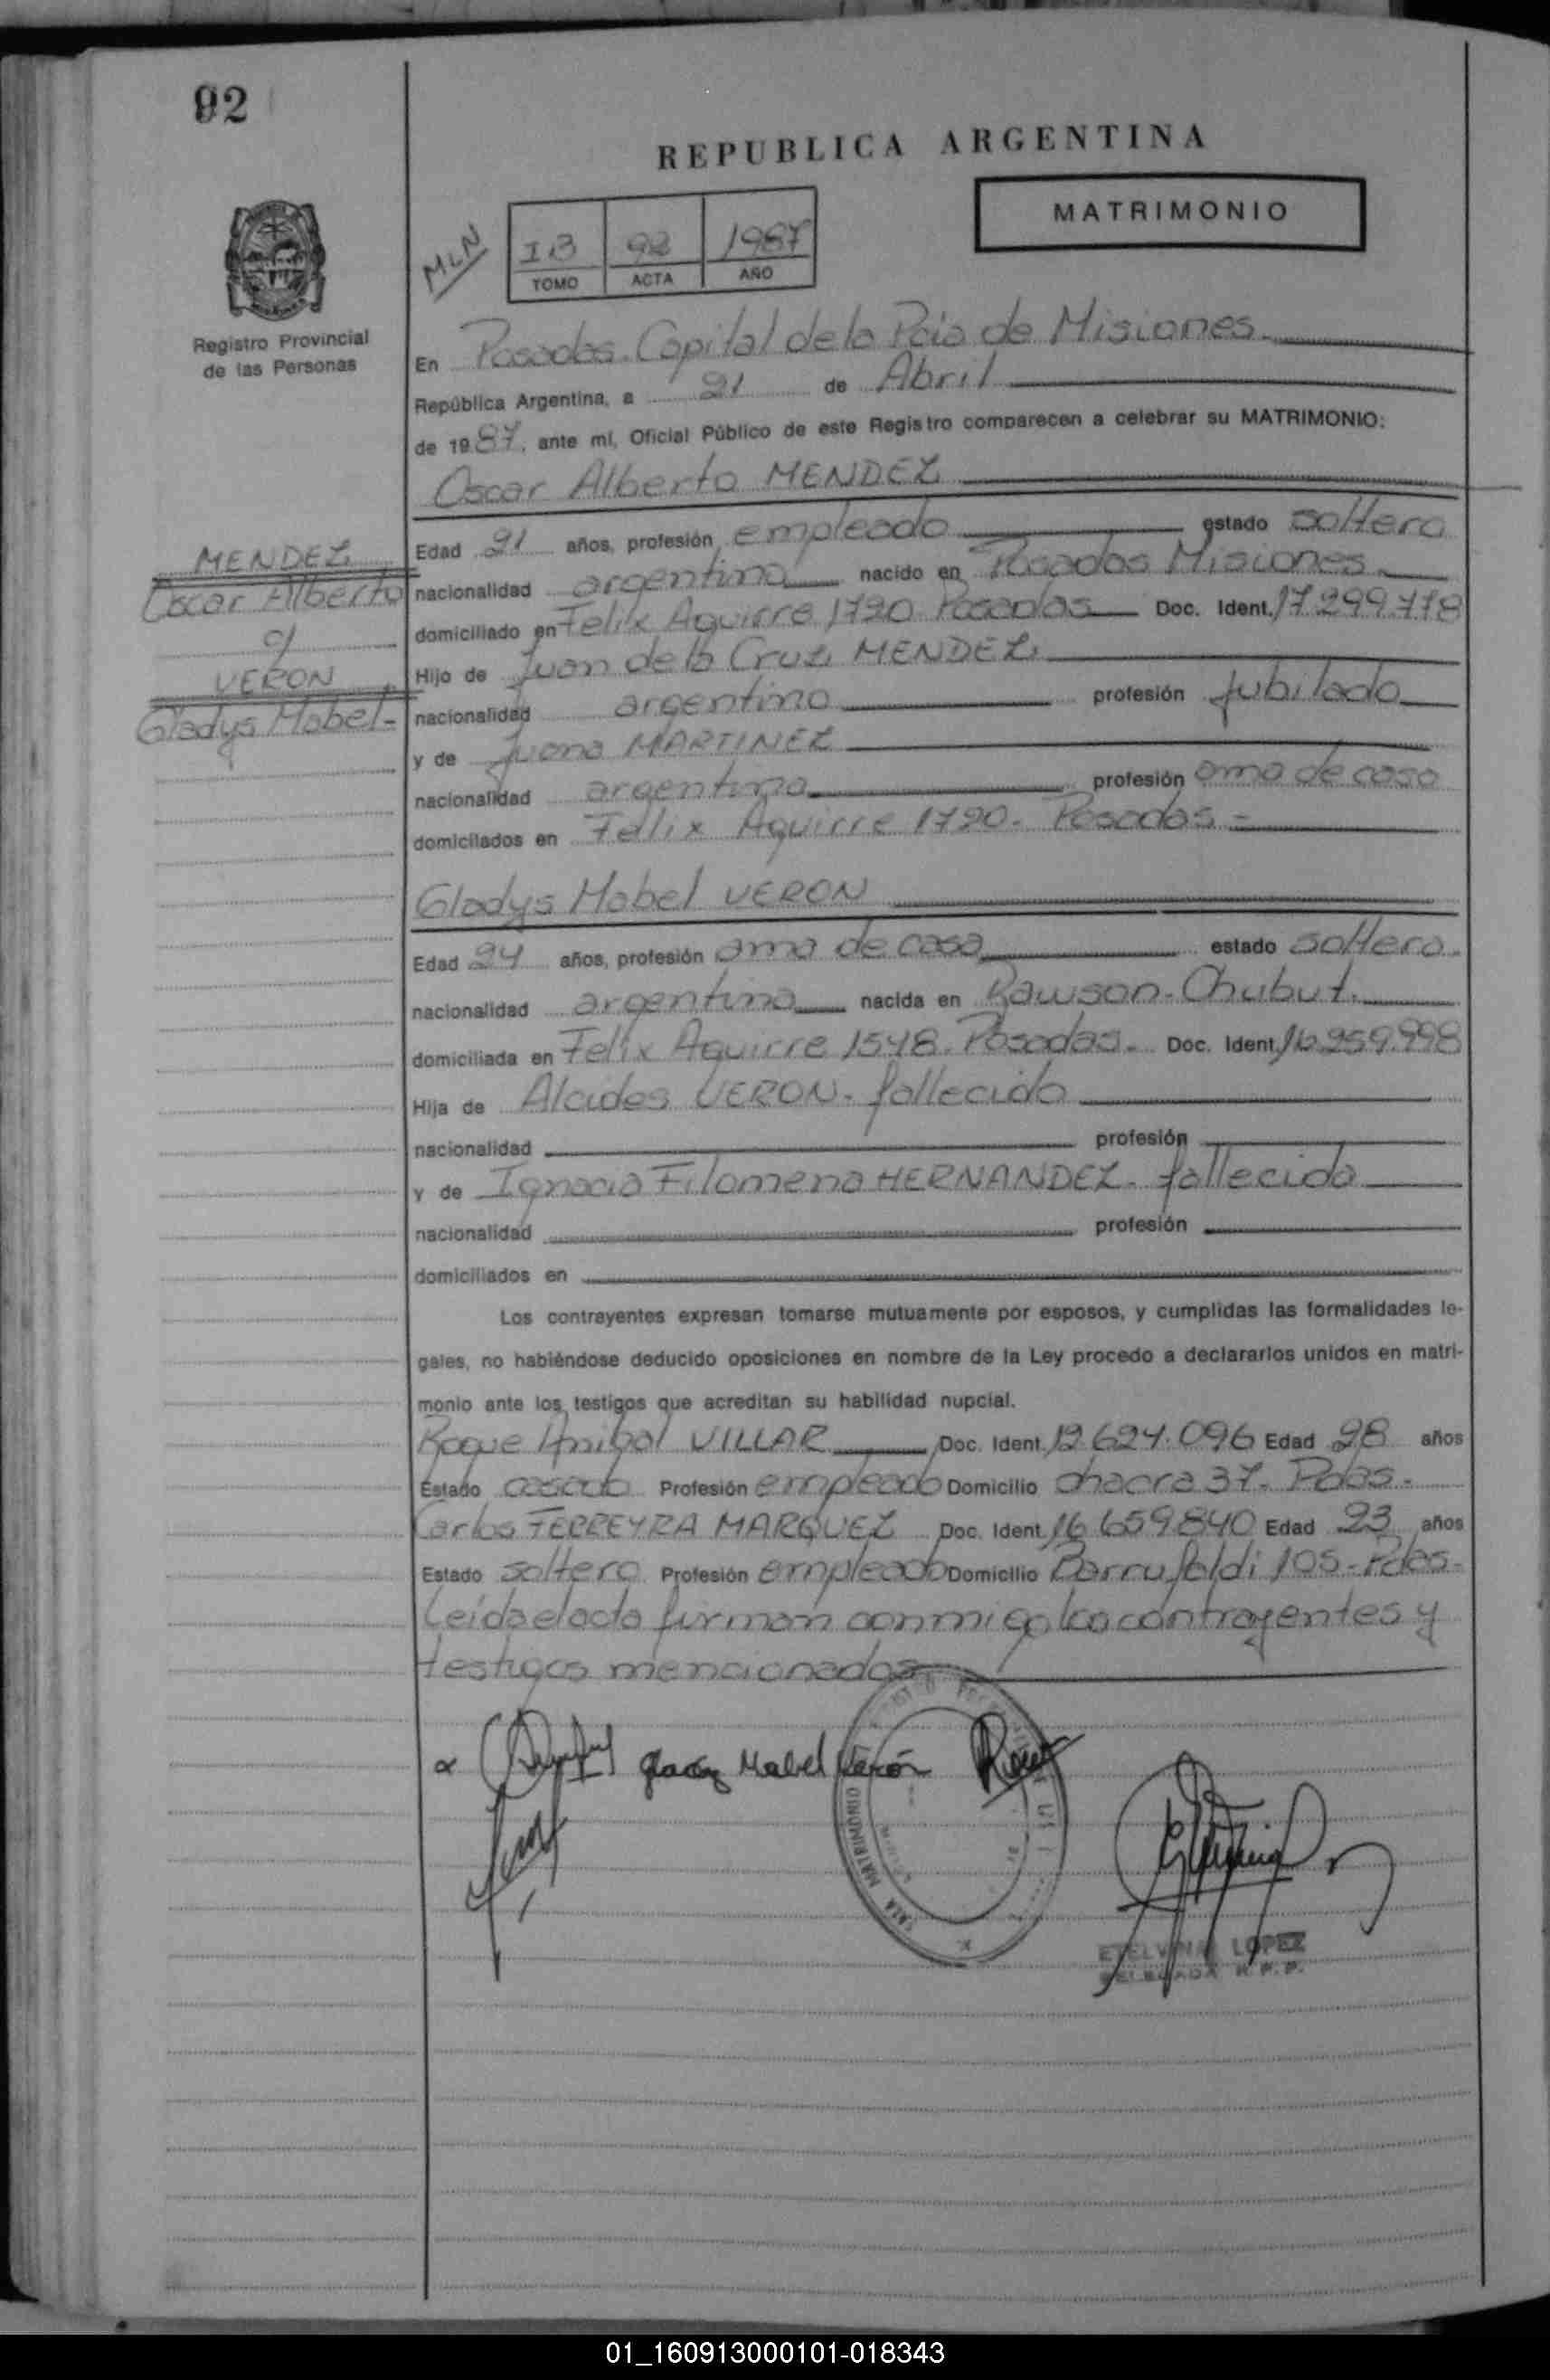 92
REPUBLICA ARGENTINA
MATRIMONIO
MLN
IB 92 1987
TOMO ACTA AÑO
Registro Provincial
de las Personas
En Posadas. Capital de la Pcia de Misiones.
República Argentina, a 21 de Abril
de 1987, ante mí, Oficial Público de este Registro comparecen a celebrar su MATRIMONIO:
Oscar Alberto MENDEZ
Edad 21 años, profesión empleado estado soltero
nacionalidad argentina nacido en Posadas Misiones.
domiciliado en Felix Aguirre 1720. Posadas Doc. Ident. 17.299.778
Hijo de Juan de la Cruz MENDEZ.
nacionalidad argentino profesión jubilado
y de Juana MARTINEZ
nacionalidad argentina profesión ama de casa
domicilados en Felix Aguirre 1720. Posadas -
MENDEZ
Oscar Alberto
c/
VERON
Gladys Mabel -
Gladys Mabel VERON
Edad 24 años, profesión ama de casa estado soltera.
nacionalidad argentina nacida en Rawson. Chubut.
domiciliada en Felix Aguirre 1548. Posadas. Doc. Ident. 16.259.998
Hija de Alcides VERON. fallecido
nacionalidad profesión
y de Ignacia Filomena HERNANDEZ. fallecida
nacionalidad profesión
domiciliados en
Los contrayentes expresan tomarse mutuamente por esposos, y cumplidas las formalidades le-
gales, no habiéndose deducido oposiciones en nombre de la Ley procedo a declararlos unidos en matri-
monio ante los testigos que acreditan su habilidad nupcial.
Roque Anibal VILLAR Doc. Ident. 12.624.096 Edad 28 años
Estado casado Profesión empleado Domicilio chacra 37. Pdas.
Carlos FERREYRA MARQUEZ Doc. Ident. 16.659.840 Edad 23 años
Estado soltero Profesión empleado Domicilio Barrufaldi 105 - Pdas -
Leída el acta firman conmigo los contrayentes y
testigos mencionados
Gladys Mabel Verón
SALA MATRIMONIO
ETELVINA LOPEZ
DELEGADA R. P. P.
01_160913000101-018343